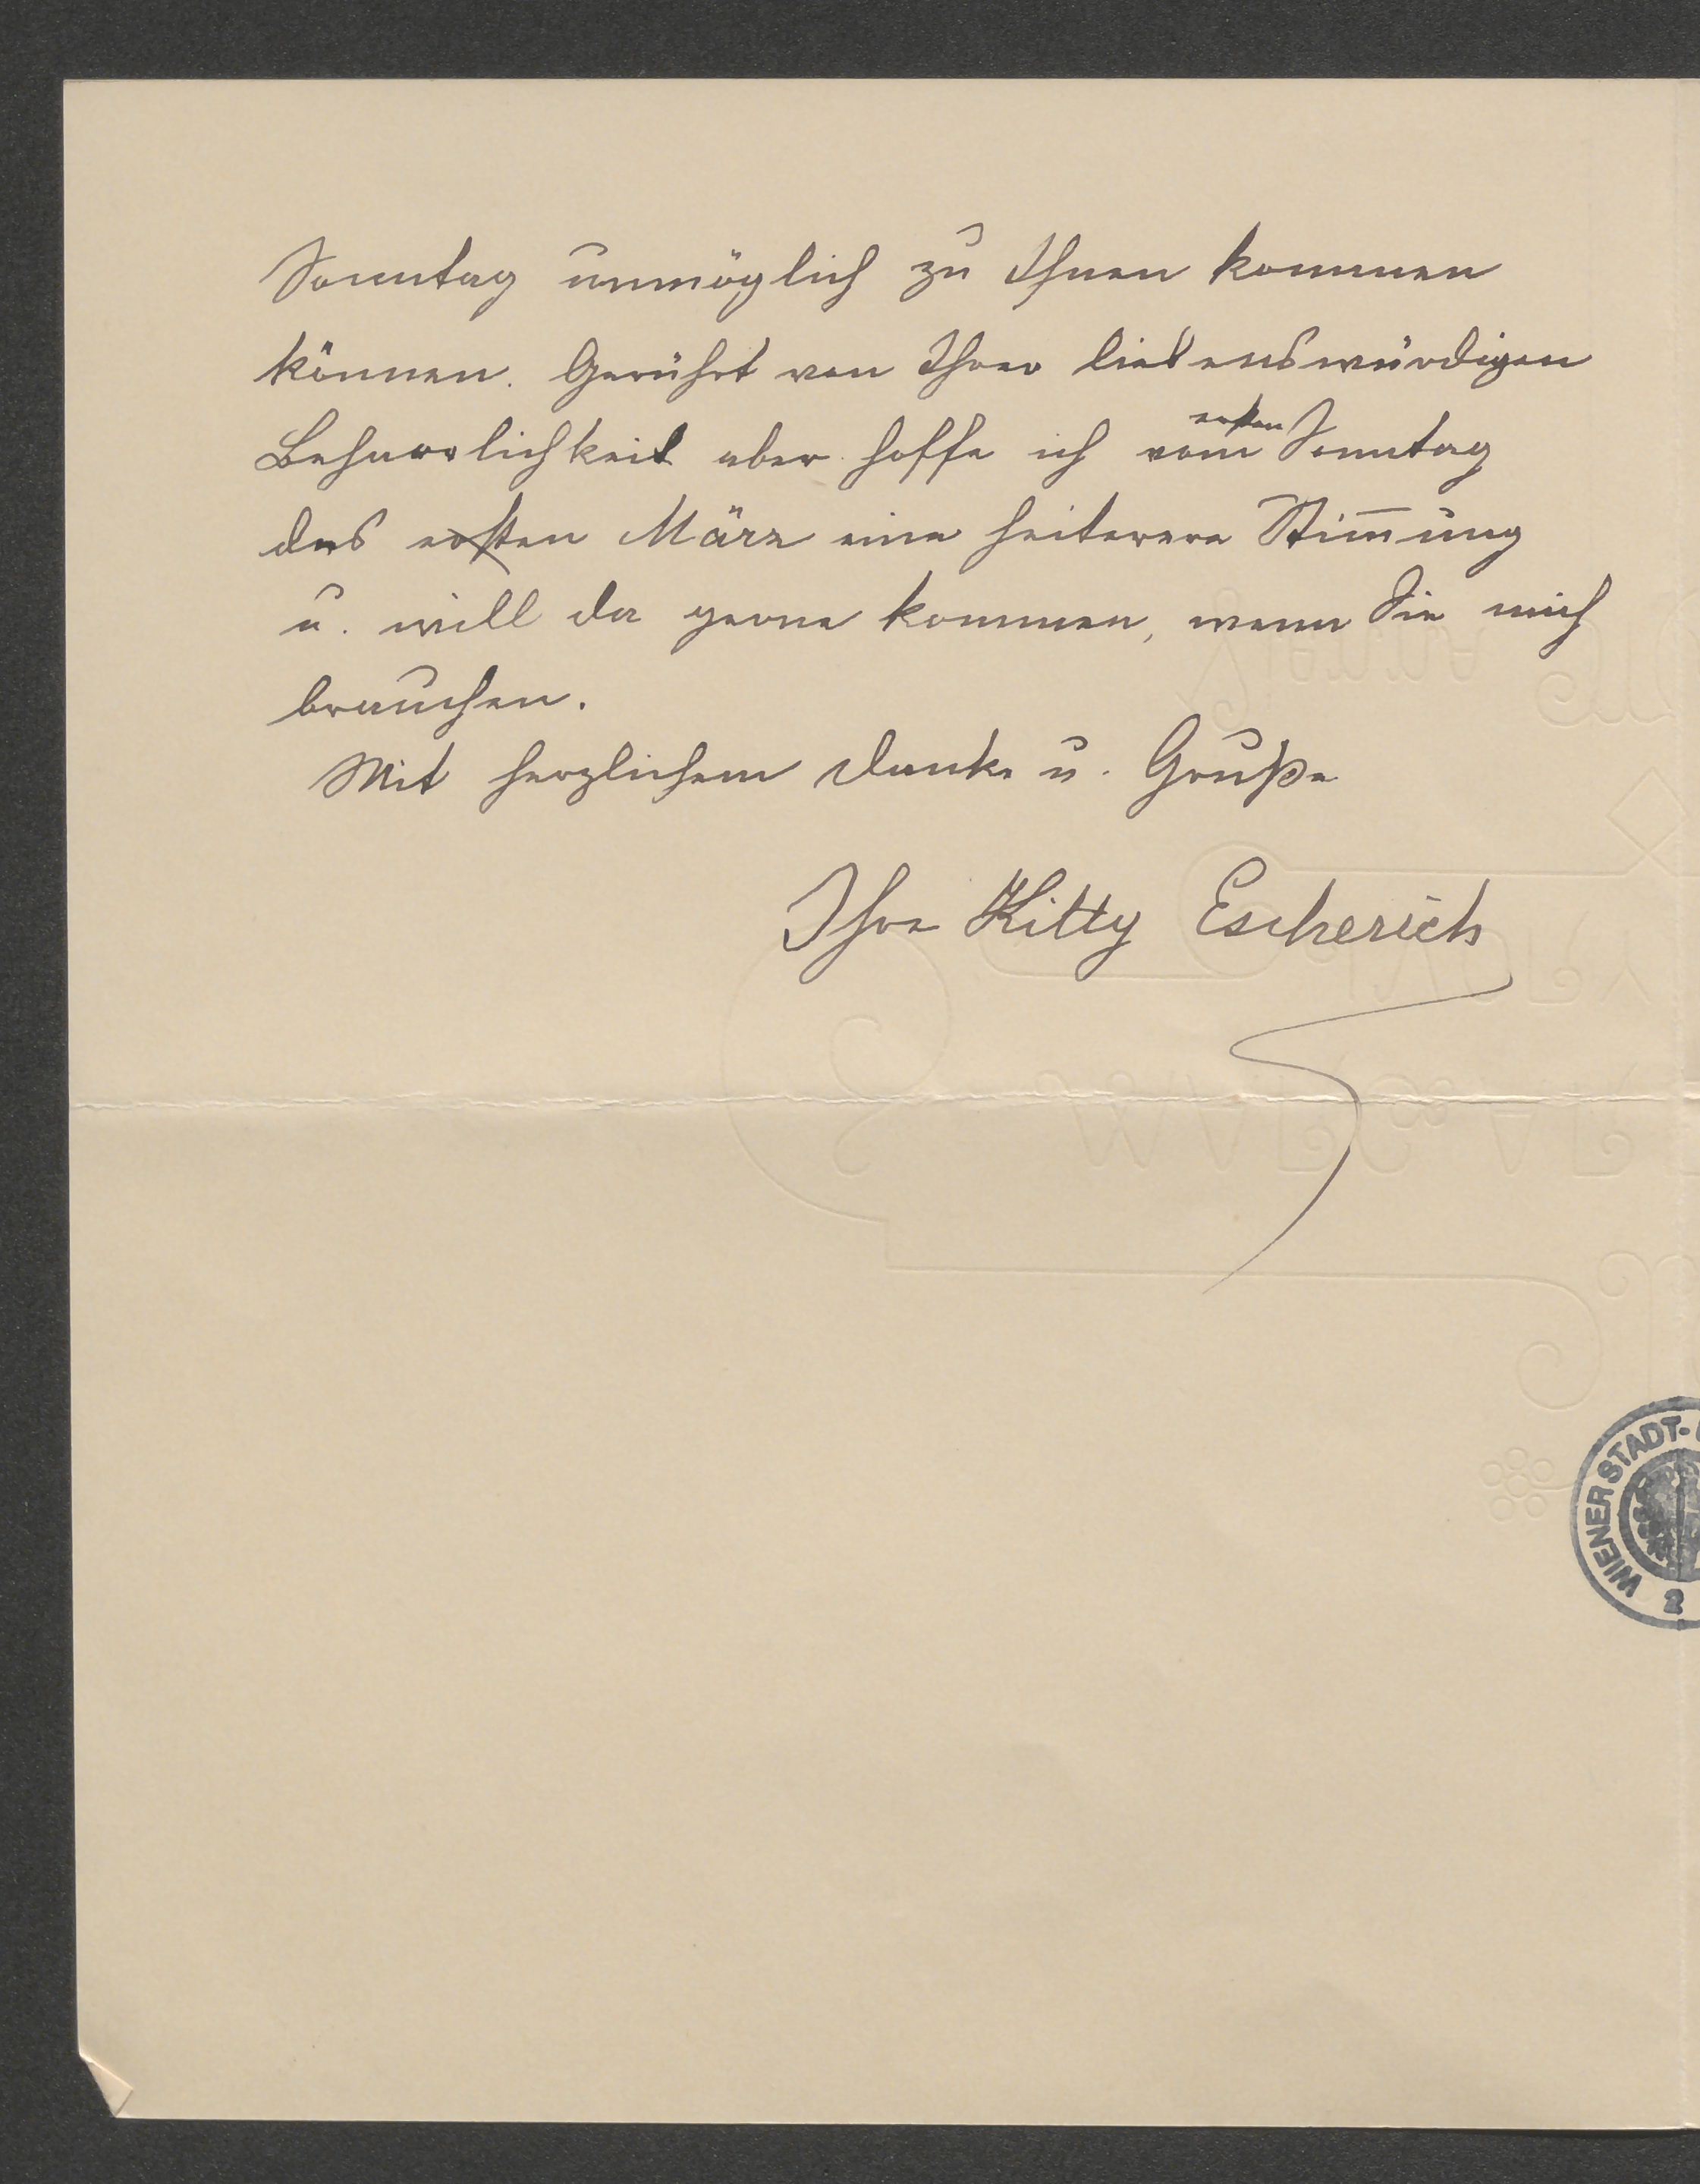 Sonntag unmöglich zu Ihnen kommen
können. Gerührt von Ihrer liebenswürdigen
Beharrlichkeit aber hoffe ich vom ersten Sonntag
des ersten März eine heiterere Stim̅ung
u. will da gerne kommen, wenn Sie mich
brauchen.
Mit herzlichem Danke u. Gruße
Ihre Kitty Escherich
WIENER STADT-
2